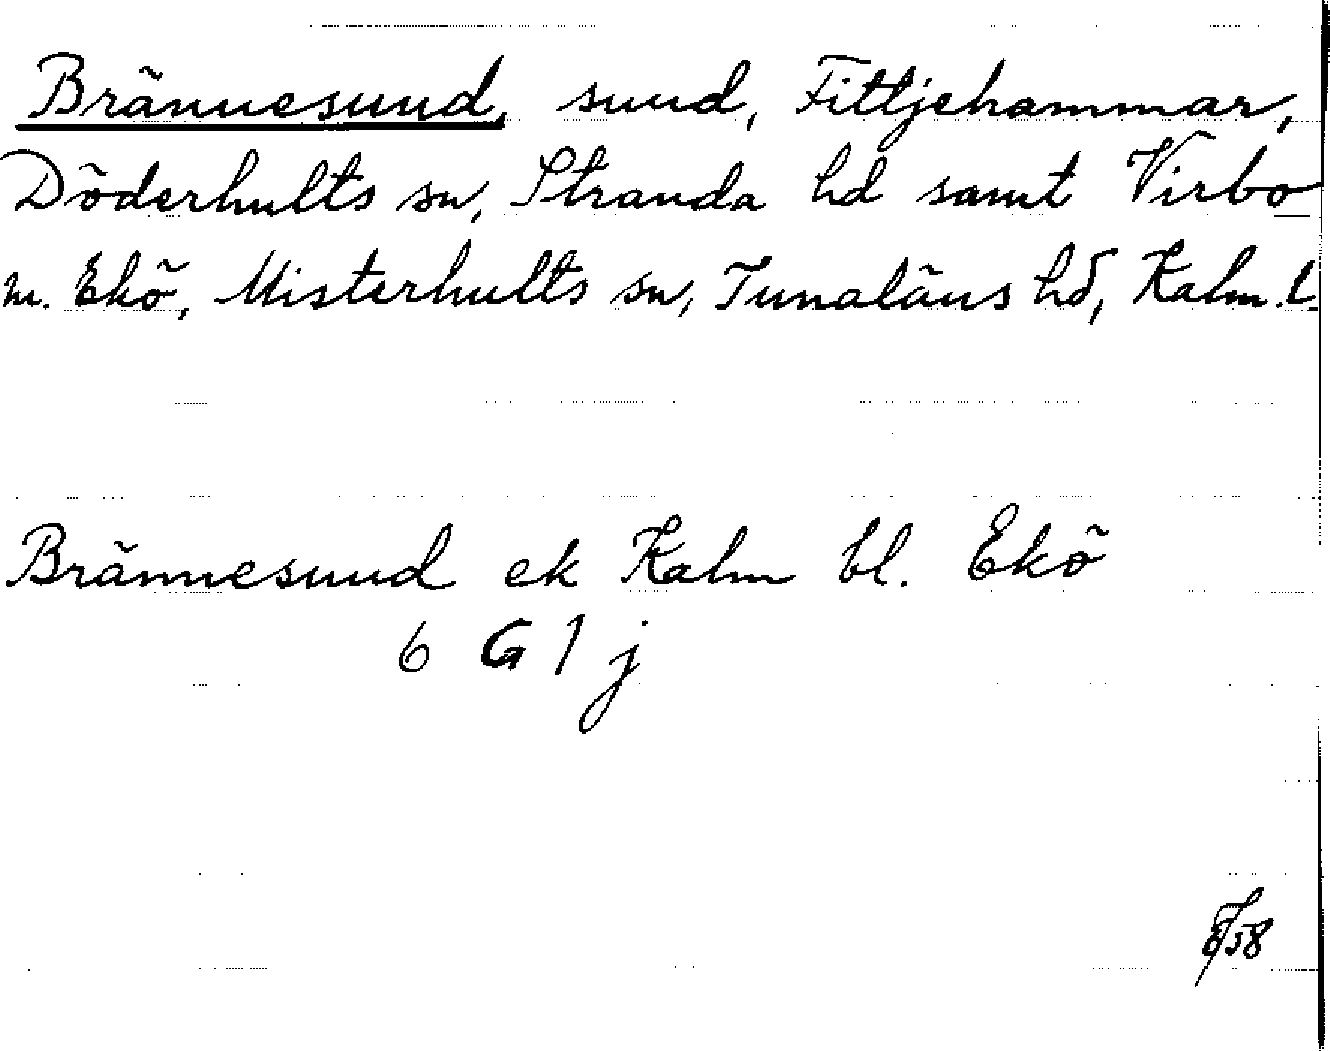 Brännesund, sund, Fittjehammar,
Döderhults sn, Stranda hd samt Virbo
m. Ekö, Misterhults sn, Tunaläns hd, Kalm. l.
Brännesund ek Kalm bl. Ekö
6 G 1 j